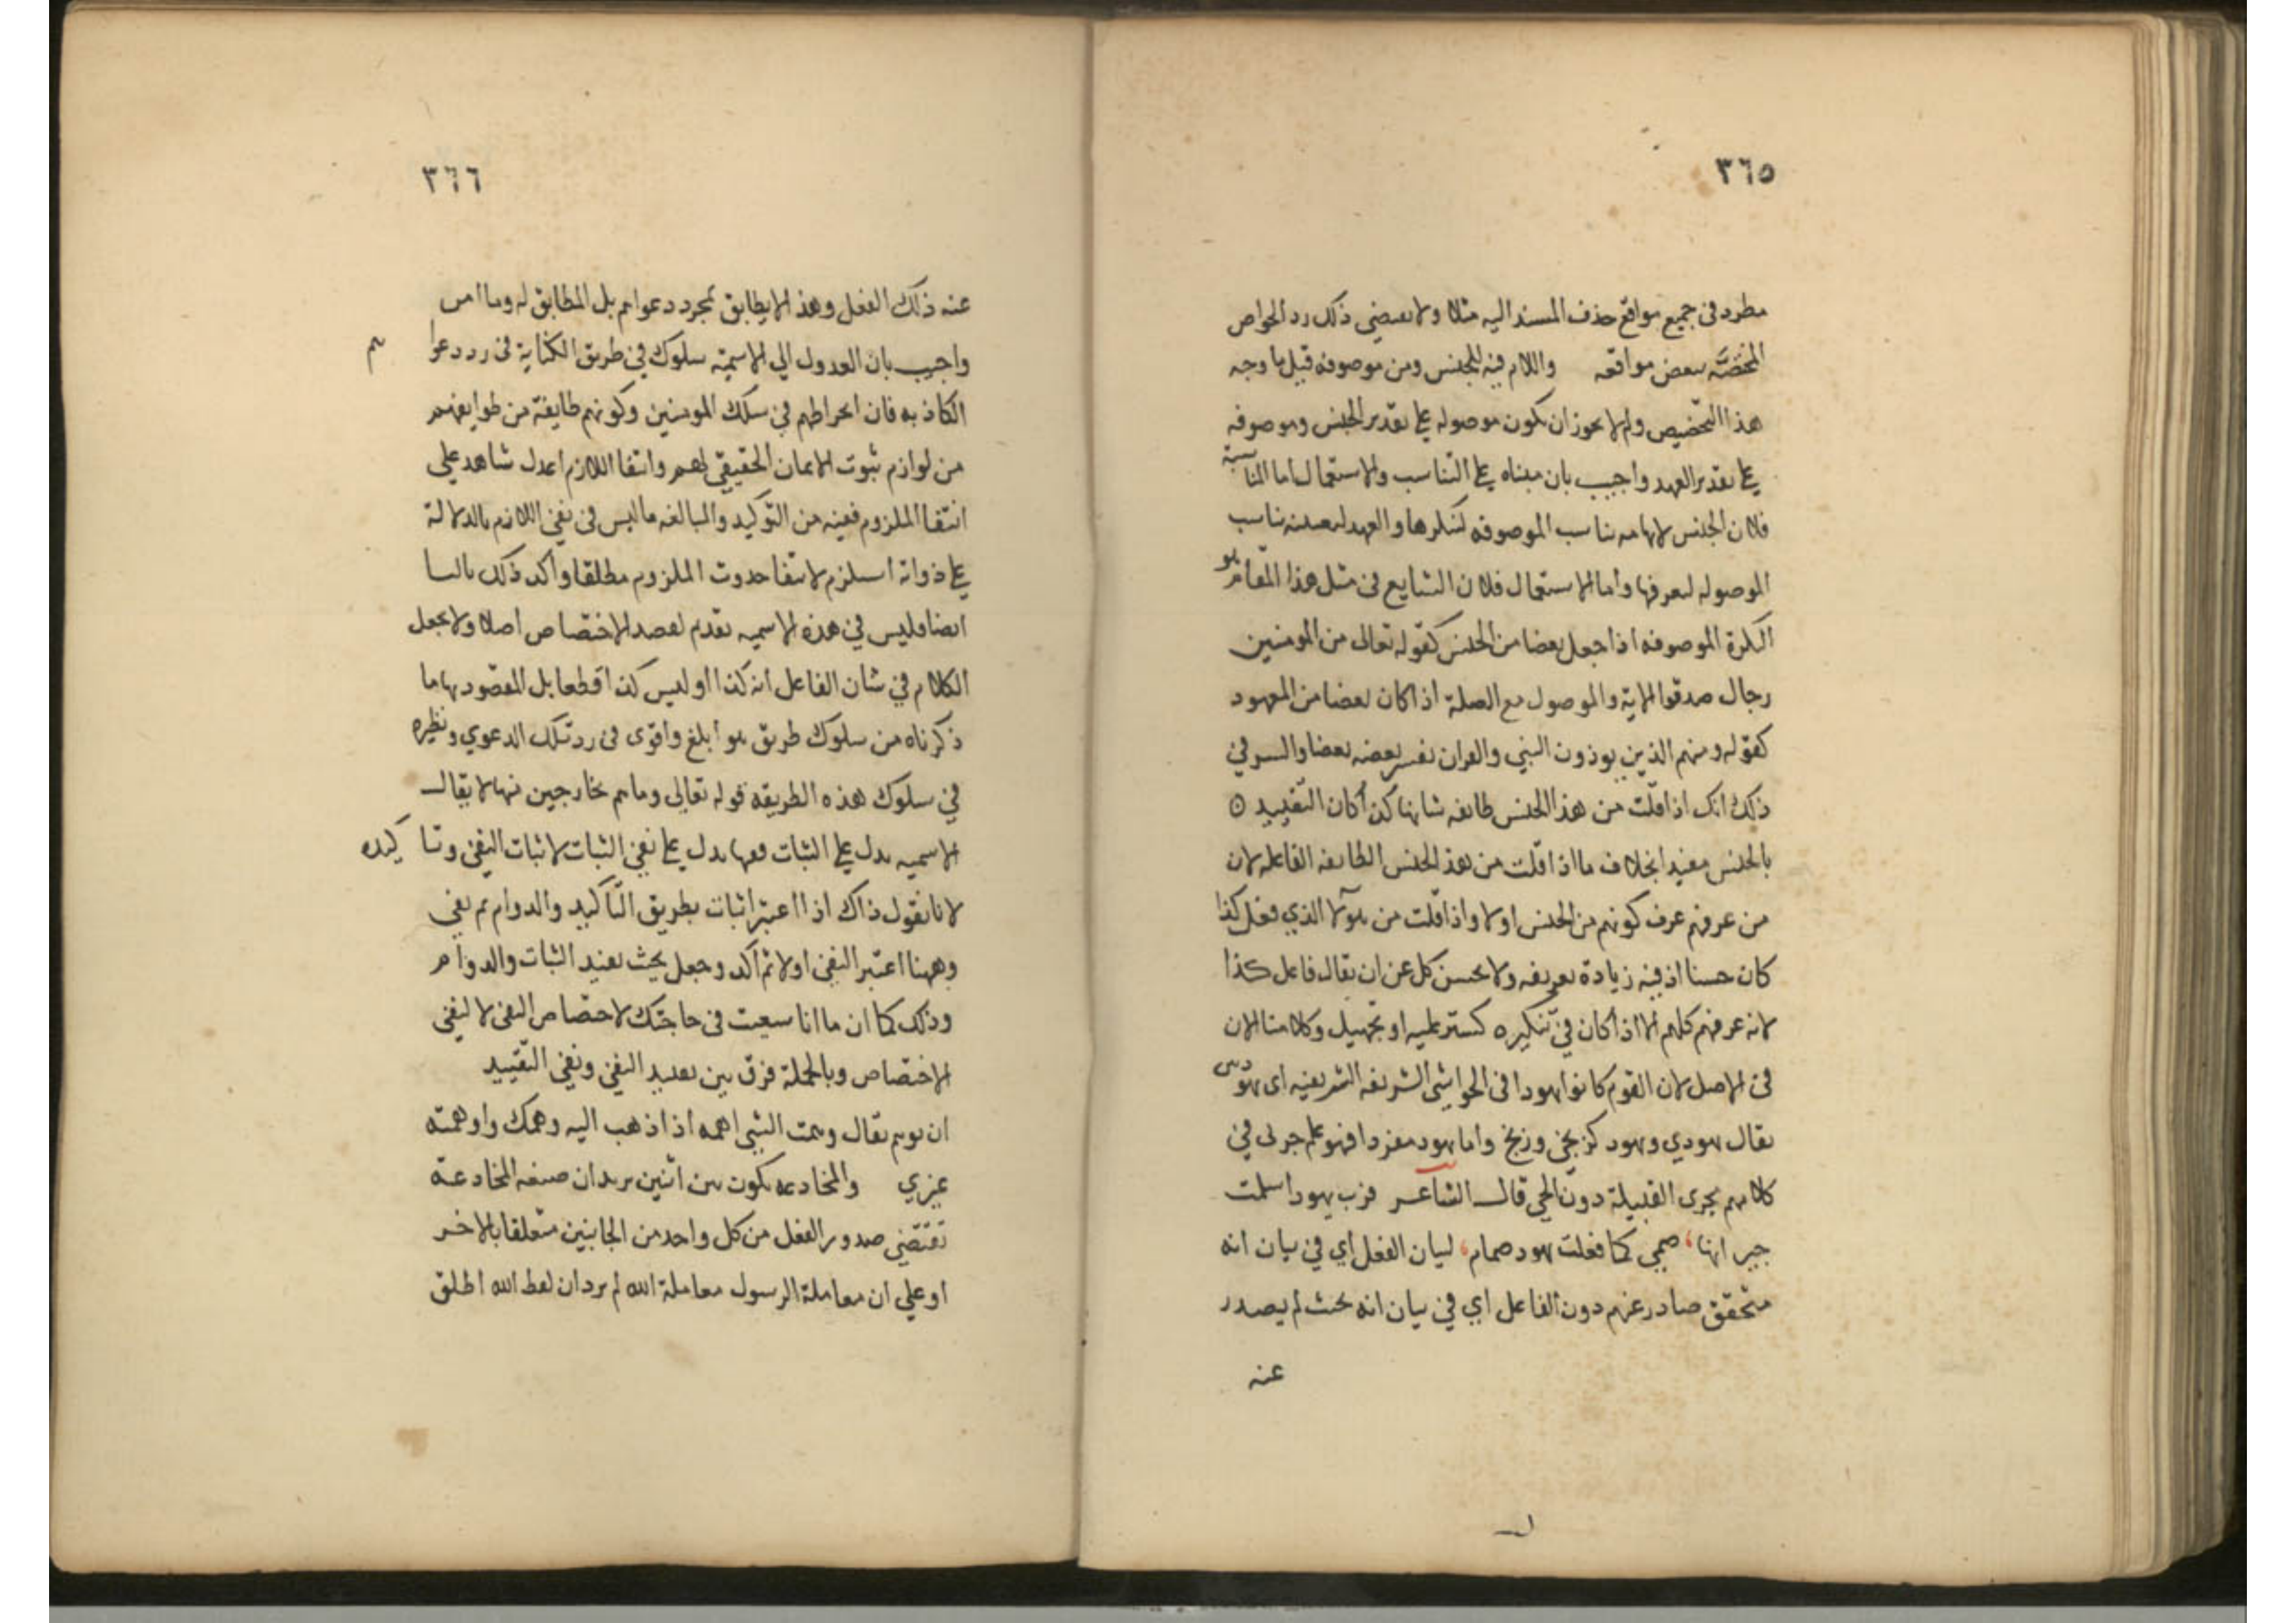 ٣٦٥
مطرد فى جميع مواقع حذف المسند اليه مثلا ولا يقتضى ذلك رد الخواص
المختصة ببعض مواقعه واللام فيه للجنس ومن موصوفة قيل ما وجه
هذا التخصيص ولم لا يجوز ان يكون موصوله على تقدير الجنس وموصوفه
على تقدير العهد واجيب بان مبناه على التناسب والاستعمال اما المناسبة
فلان الجنس لابهامه يناسب الموصوفه لتنكرها والعهد لتعينه يناسب
الموصوله لتعرفها واما الاستعمال فلان الشايع فى مثل هذا المقام هو
النكرة الموصوفه اذا جعل بعضا من الجنس كقوله تعالى من المومنين
رجال صدقوا الاية والموصول مع الصلة اذا كان بعضا من المعهود
كقوله ومنهم الذين يوذون النبي والقران يفسر بعضه بعضا والسر في
ذلك انك اذا قلت من هذا الجنس طايفه شانها كذا كان التقييد
بالجنس مفيدا بخلاف ما اذا قلت من هذا الجنس الطايفه الفاعله لان
من عرفهم عرف كونهم من الجنس اولا واذا قلت من هولا الذي فعل كذا
كان حسنا اذ فيه زيادة تعريفه ولا يحسن كل عن ان يقال فاعل كذا
لانه عرفهم كلهم الا اذا كان في تنكيره كستر عليه او تجهيل وكلامنا الان
فى الاصل لان القوم كانوا يهودا فى الحواشى الشريفه الشريفيه اى يهودي
يقال يهودي ويهود كزنجي وزنج واما يهود مفردا فهو علم جرى في
كلامهم مجرى القبيلة دون الحي قال الشاعر فرت يهود اسلمت
جيرانها، صمي كما فعلت يهود صمام، لبيان الفعل اي في بيان انه
متحقق صادر عنهم دون الفاعل اي في بيان انه بحيث لم يصدر
عنه
٣٦٦
عنه ذلك الفعل وهذا لا يطابق لمجرد دعواهم بل المطابق له وما امن
واجيب بان العدول الي الاسمية سلوك في طريق الكناية فى رد دعواهم
الكاذبه فان انخراطهم في سلك المومنين وكونهم طايفة من طوايفهم
من لوازم ثبوت الايمان الحقيقي لهم وانتفا اللازم اعدل شاهد علي
انتفا الملزوم ففيه من التوكيد والمبالغه ما ليس فى نفي اللازم بالدلالة
على دوامه استلزم لانتفا حدوث الملزوم مطلقا واكد ذلك بالبا
ايضا فليس في هذه الاسميه تقديم لقصد الاختصاص اصلا ولا يجعل
الكلام في شان الفاعل انه كذا او ليس كذا قطعا بل المقصود بها ما
ذكرناه من سلوك طريق هو ابلغ واقوى فى رد تلك الدعوي ونظيره
في سلوك هذه الطريقه قوله تعالى وما هم بخارجين منها لا يقال
الاسميه تدل على الثبات فنفيها يدل على نفي الثبات لا ثبات النفي وتاكيده
لانا نقول ذاك اذا اعتبر اثبات بطريق التاكيد والدوام ثم نفي
وههنا اعتبر النفي اولا ثم اكد وجعل بحيث يفيد الثبات والدوام
وذلك كما ان ما انا سعيت فى حاجتك لاختصاص النفي لا لنفي
الاختصاص وبالجملة فرق بين تقييد النفي ونفي التقييد
ان توهم يقال وهمت الشى اهمه اذا ذهب اليه وهمك واوهمته
غيري والمخادعه تكون بين اثنين يريد ان صيغه المخادعة
تقتضي صدور الفعل من كل واحد من الجانبين متعلقا بالاخر
او علي ان معاملة الرسول معاملة الله لم يرد ان لفظ الله اطلق